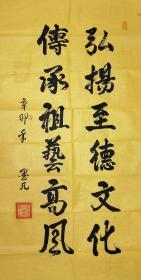 弘揚至德文化
傳承祖藝高風
辛卯年